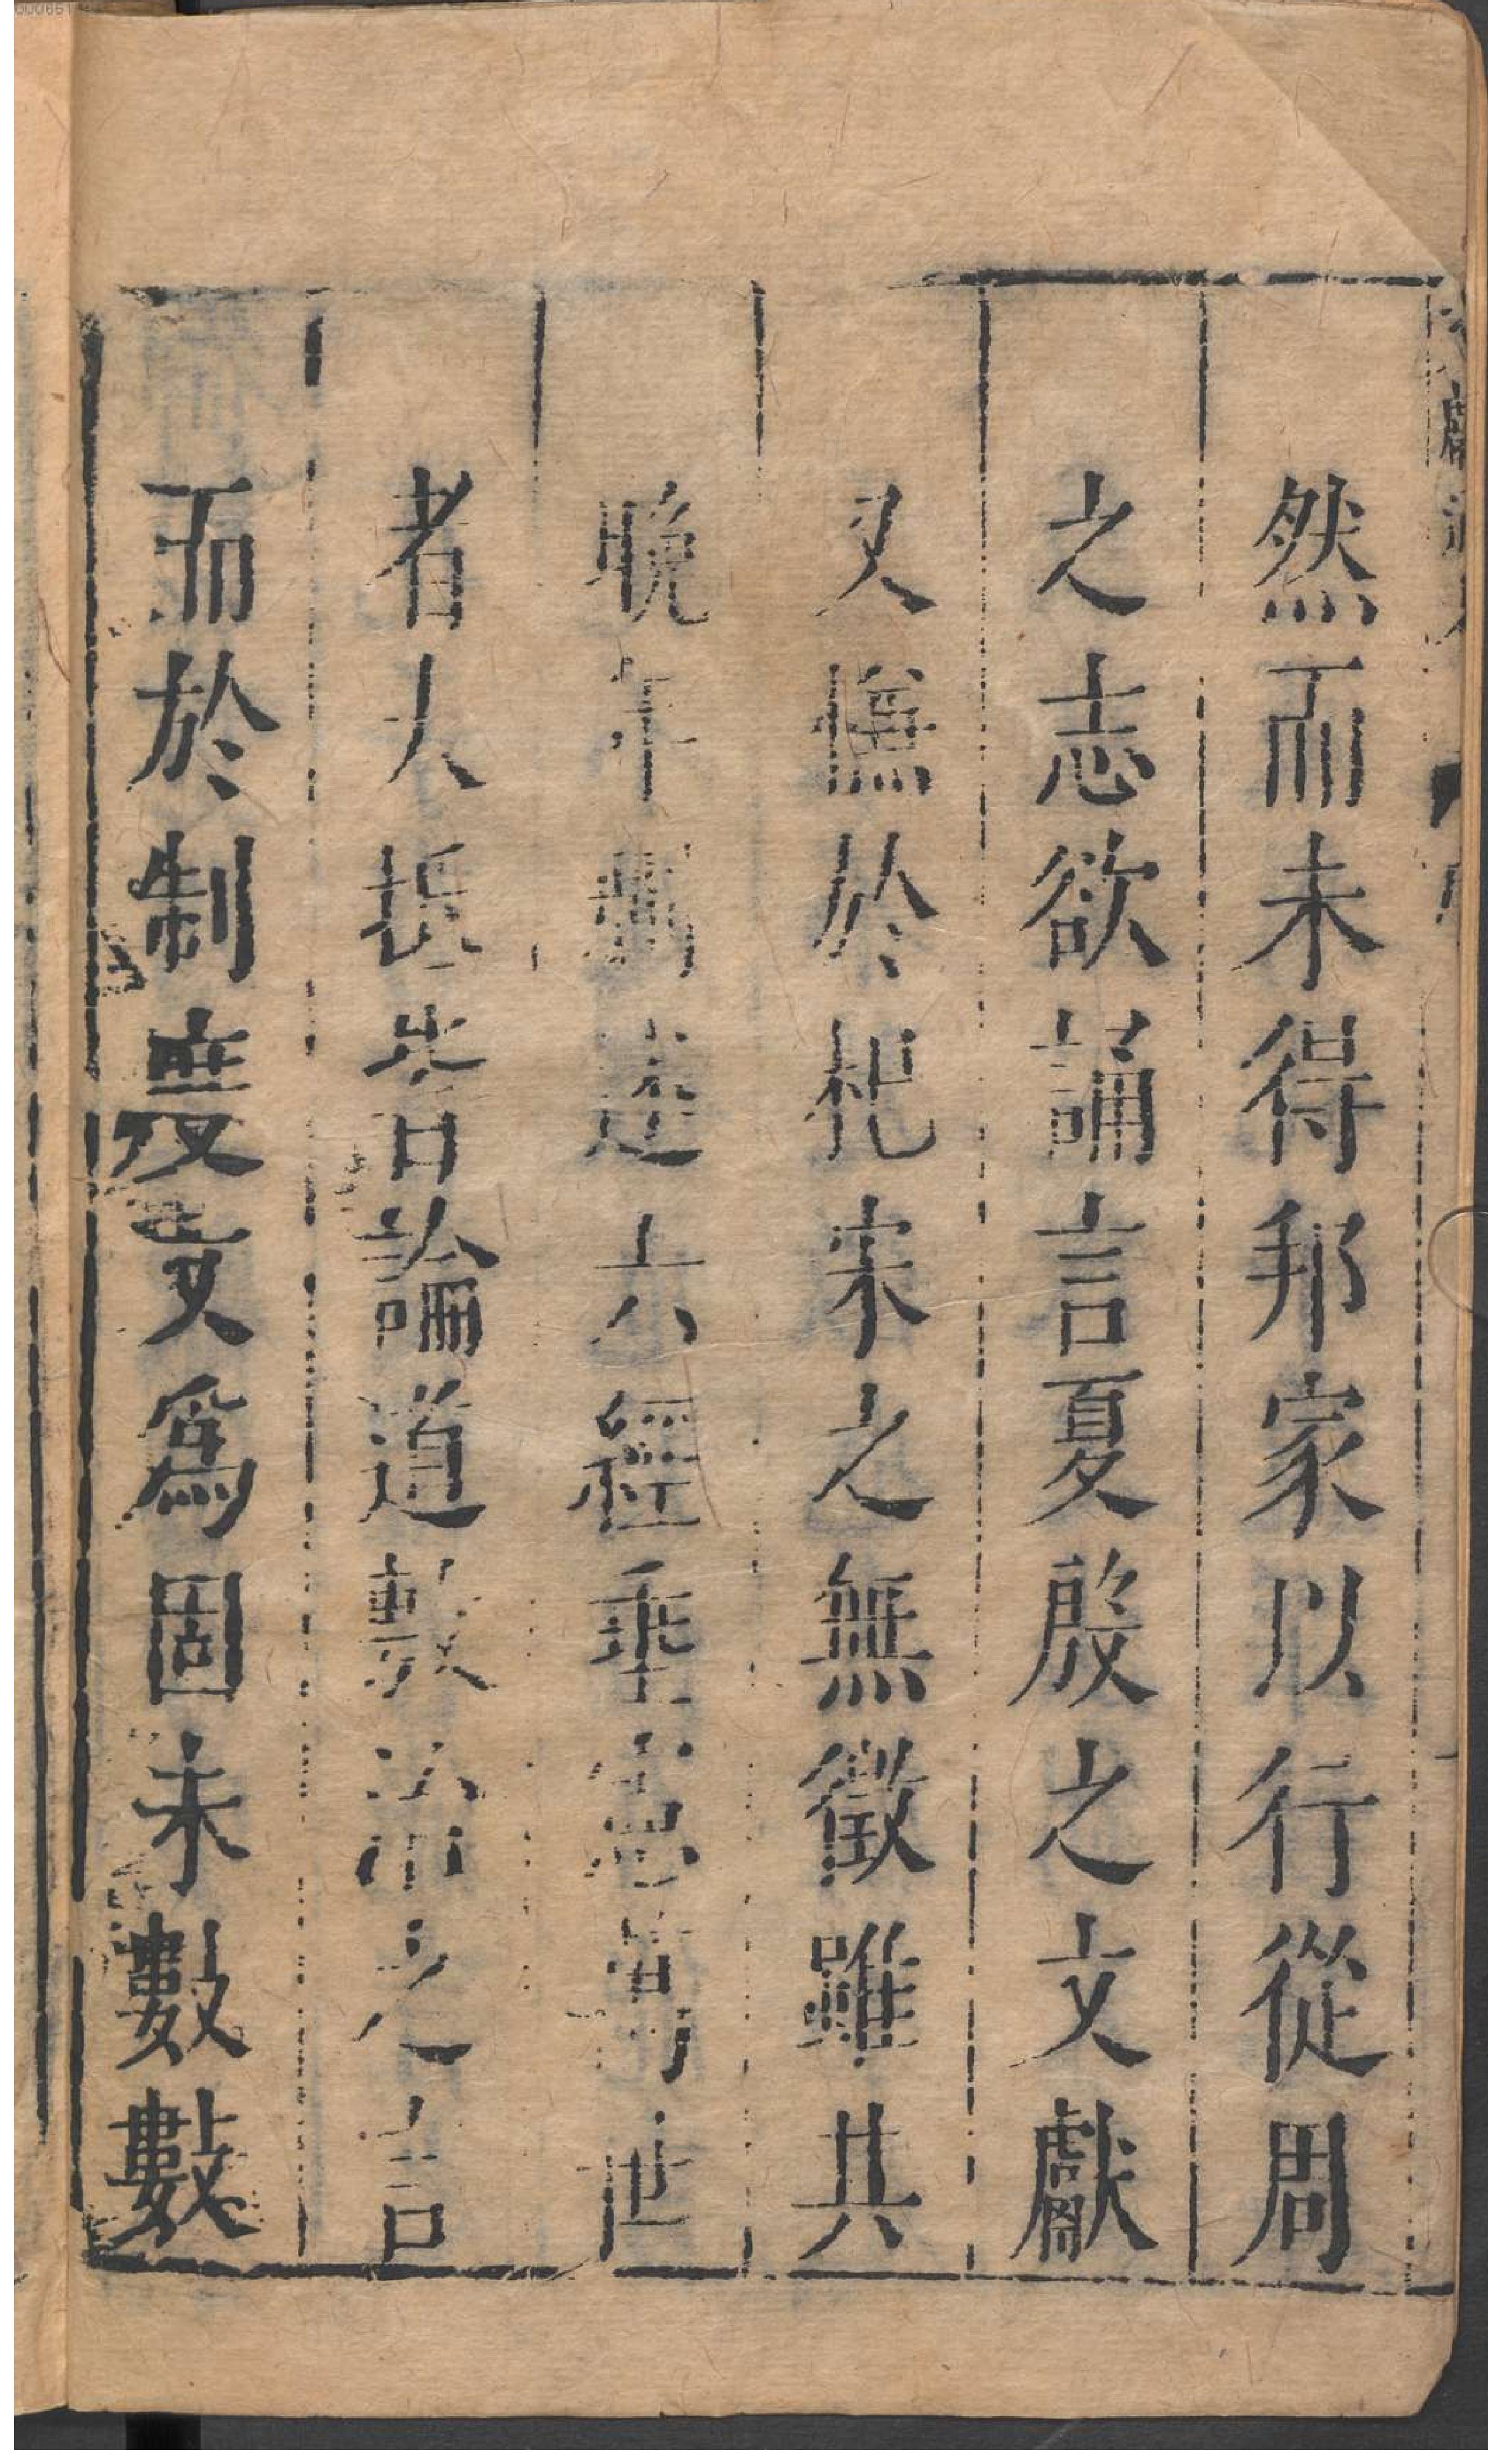 然而未得邦家以行從周
之志欲誦言夏殷之文獻
又憮於杞宋之無徵雖其
晚年刪述六經垂憲萬世
者大抵皆論道敷治之言
而於制度文爲固未數數